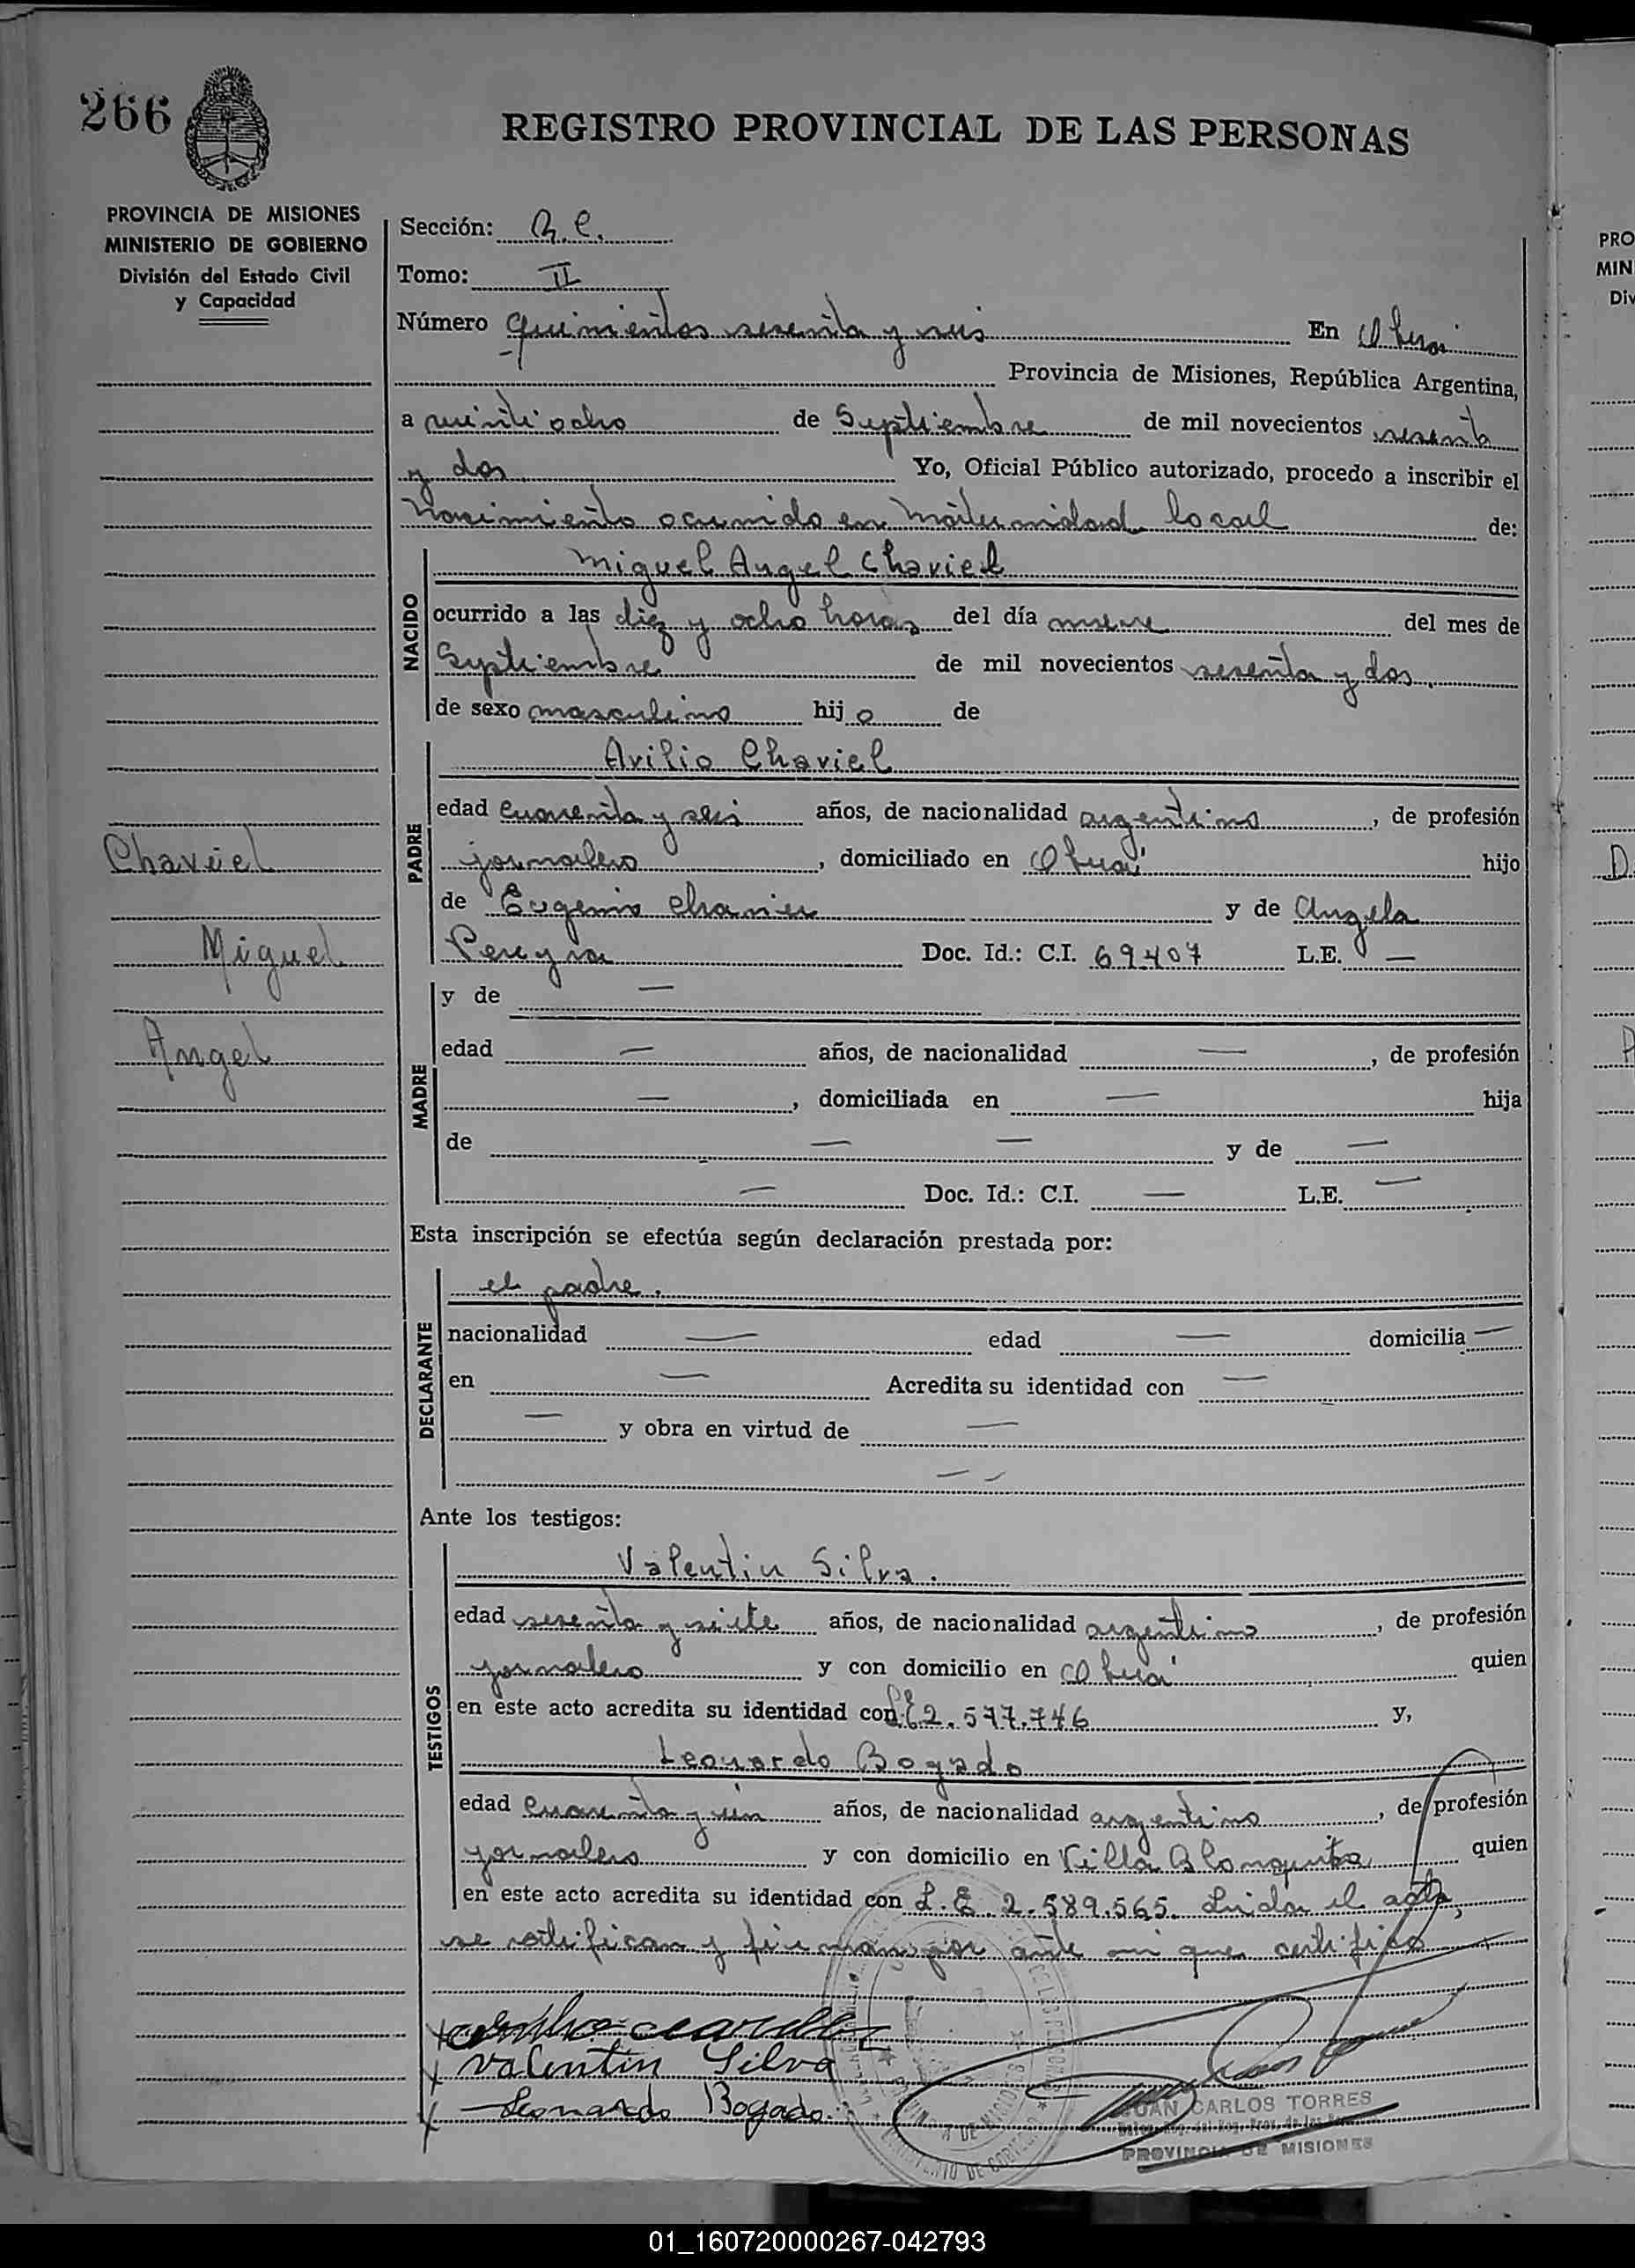 266
REGISTRO PROVINCIAL DE LAS PERSONAS
PROVINCIA DE MISIONES
MINISTERIO DE GOBIERNO
División del Estado Civil
y Capacidad
Sección: R.C.
Tomo: II
Número quinientos sesenta y seis En Oberá
Provincia de Misiones, República Argentina,
a veintiocho de Septiembre de mil novecientos sesenta
y dos Yo, Oficial Público autorizado, procedo a inscribir el
Nacimiento ocurrido en Maternidad local de:
NACIDO
Miguel Angel Chaviel
ocurrido a las diez y ocho horas del día nueve del mes de
Septiembre de mil novecientos sesenta y dos.
de sexo masculino hijo de
PADRE
Avilio Chaviel
edad cuarenta y seis años, de nacionalidad argentino, de profesión
jornalero, domiciliado en Oberá hijo
de Eugenio y de Angela
Pereyra Doc. Id.: C.I. 69407 L.E. —
Chaviel
Miguel
Angel
MADRE
y de —
edad — años, de nacionalidad —, de profesión
—, domiciliada en — hija
de — — y de —
— Doc. Id.: C.I. — L.E. —
Esta inscripción se efectúa según declaración prestada por:
DECLARANTE
el padre.
nacionalidad — edad — domicilia —
en — Acredita su identidad con —
— y obra en virtud de —
— —
Ante los testigos:
TESTIGOS
Valentin Silva.
edad sesenta y siete años, de nacionalidad argentino, de profesión
jornalero y con domicilio en Oberá quien
en este acto acredita su identidad con L.E 2.577.746 y,
Leonardo Bogado
edad cuarenta y un años, de nacionalidad argentino, de profesión
jornalero y con domicilio en Villa Blanquita quien
en este acto acredita su identidad con L.E. 2.589.565. Leida el acta,
se ratifican y firman por ante mi que certifico
Valentin Silva
Leonardo Bogado.
JUAN CARLOS TORRES
PROVINCIA DE MISIONES
PRO
MIN
Div
01_160720000267-042793